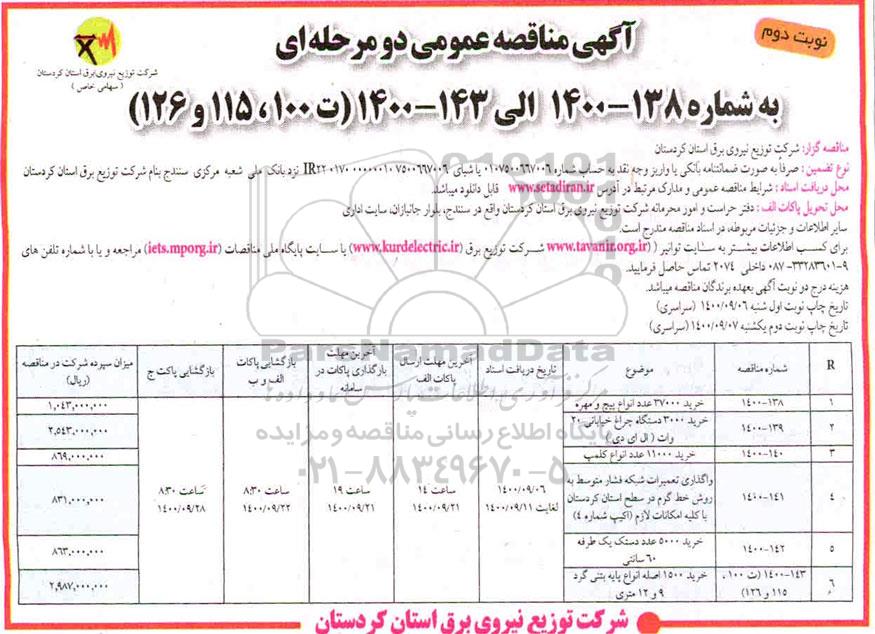 نوبت دوم
آگهی مناقصه عمومی دو مرحله‌ای
شرکت توزیع نیروی برق استان کردستان
( سهامی خاص )
به شماره ۱۳۸-۱۴۰۰ الی ۱۴۳-۱۴۰۰ (ت ۱۰۰ ، ۱۱۵ و ۱۲۶)
مناقصه گزار: شرکت توزیع نیروی برق استان کردستان
نوع تضمین : صرفاً به صورت ضمانتنامه بانکی یا واریز وجه نقد به حساب شماره ۰۱۰۷۵۰۰۶۶۷۰۰۶ یا شبای IR۲۲۰۱۷۰۰۰۰۰۰۰۱۰۷۵۰۰۶۶۷۰۰۶ نزد بانک ملی شعبه مرکزی سنندج بنام شرکت توزیع برق استان کردستان
محل دریافت اسناد : شرایط مناقصه عمومی و مدارک مرتبط در آدرس www.setadiran.ir قابل دانلود میباشد.
محل تحویل پاکات الف : دفتر حراست و امور محرمانه شرکت توزیع نیروی برق استان کردستان واقع در سنندج، بلوار جانبازان، سایت اداری
سایر اطلاعات و جزئیات مربوطه، در اسناد مناقصه مندرج است.
برای کسب اطلاعات بیشتر به سایت توانیر ( (www.tavanir.org.ir شرکت توزیع برق (www.kurdelectric.ir) یا سایت پایگاه ملی مناقصات (iets.mporg.ir) مراجعه و یا با شماره تلفن های
۹-۳۳۲۸۳۶۰۱-۰۸۷ داخلی ۲۰۷۴ تماس حاصل فرمایید.
هزینه درج دو نوبت آگهی بعهده برندگان مناقصه میباشد.
تاریخ چاپ نوبت اول شنبه ۱۴۰۰/۰۹/۰۶ (سراسری)
تاریخ چاپ نوبت دوم یکشنبه ۱۴۰۰/۰۹/۰۷ (سراسری)
ParsNamadData
پایگاه اطلاع رسانی مناقصه و مزایده
۰۲۱-۸۸۳۴۹۶۷۰-۵
R شماره مناقصه موضوع تاریخ دریافت اسناد آخرین مهلت ارسال پاکات الف آخرین مهلت بارگذاری پاکات در سامانه بازگشایی پاکات الف و ب بازگشایی پاکت ج میزان سپرده شرکت در مناقصه (ریال)
۱ ۱۳۸-۱۴۰۰ خرید ۳۷۰۰۰ عدد انواع پیچ و مهره ۱,۰۴۳,۰۰۰,۰۰۰
۲ ۱۳۹-۱۴۰۰ خرید ۳۰۰۰ دستگاه چراغ خیابانی ۲۰ وات ( ال ای دی ) ۲,۵۴۳,۰۰۰,۰۰۰
۳ ۱۴۰-۱۴۰۰ خرید ۱۱۰۰۰ عدد انواع کلمپ ۸۶۹,۰۰۰,۰۰۰
۴ ۱۴۱-۱۴۰۰ واگذاری تعمیرات شبکه فشار متوسط به روش خط گرم در سطح استان کردستان با کلیه امکانات لازم (اکیپ شماره ۴) ۱۴۰۰/۰۹/۰۶ لغایت ۱۴۰۰/۰۹/۱۱ ساعت ۱۴ ۱۴۰۰/۰۹/۲۱ ساعت ۱۹ ۱۴۰۰/۰۹/۲۱ ساعت ۸:۳۰ ۱۴۰۰/۰۹/۲۲ ساعت ۸:۳۰ ۱۴۰۰/۰۹/۲۸ ۸۳۱,۰۰۰,۰۰۰
۵ ۱۴۲-۱۴۰۰ خرید ۵۰۰۰ عدد دستک یک طرفه ۶۰ سانتی ۸۶۳,۰۰۰,۰۰۰
۶ ۱۴۳-۱۴۰۰ (ت ۱۰۰ ، ۱۱۵ و ۱۲۶) خرید ۱۵۰۰ اصله انواع پایه بتنی گرد ۹ و ۱۲ متری ۲,۹۸۷,۰۰۰,۰۰۰
شرکت توزیع نیروی برق استان کردستان